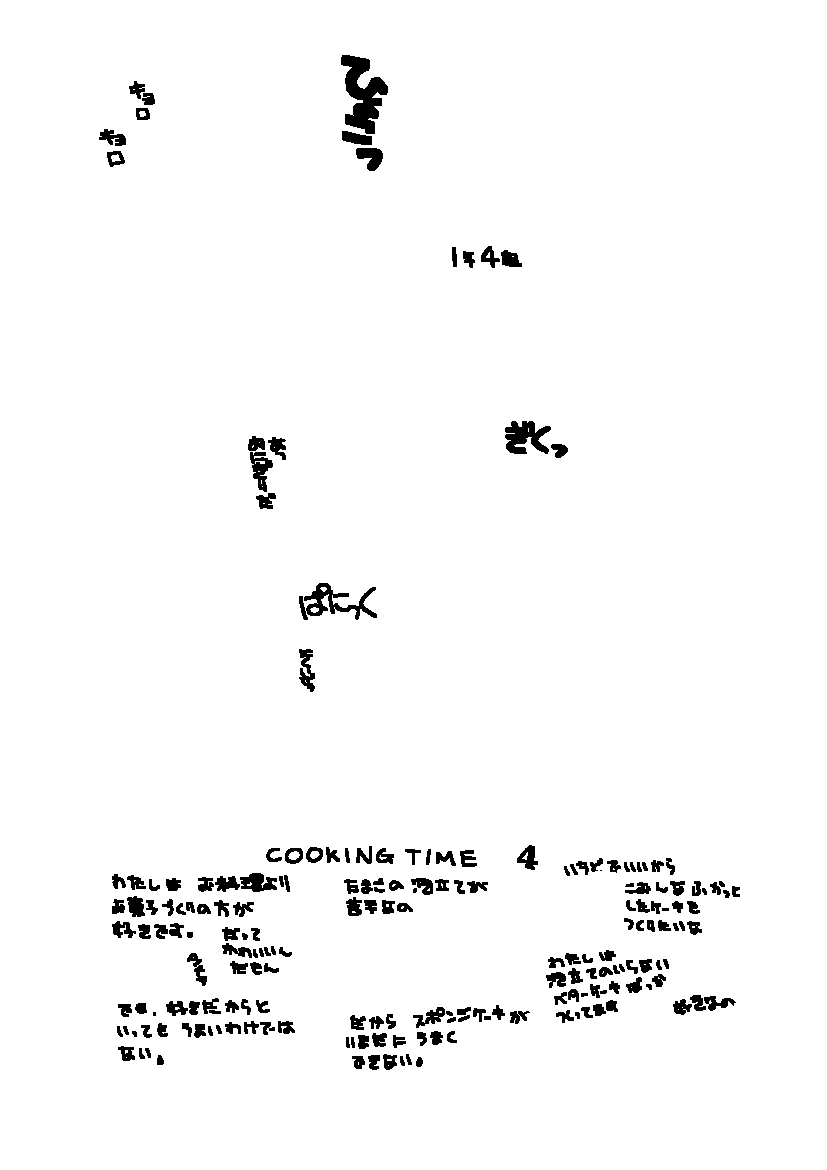 キョロ
キョロ
1年4組
ぎくっ
ぱにっく
COOKING TIME 4
わたしは お料理より
お菓子づくりの方が
好きです。
だって
かわいいん
だもん
でも、好きだからと
いっても うまいわけでは
ない。
たまごの 泡立てが
苦手なの
だから スポンジケーキが
いまだに うまく
できない。
いちどでいいから
こみんな ふかっと
したケーキを
つくりたいな
わたしは
泡立てのいらない
バターケーキ ばっか
つくってます